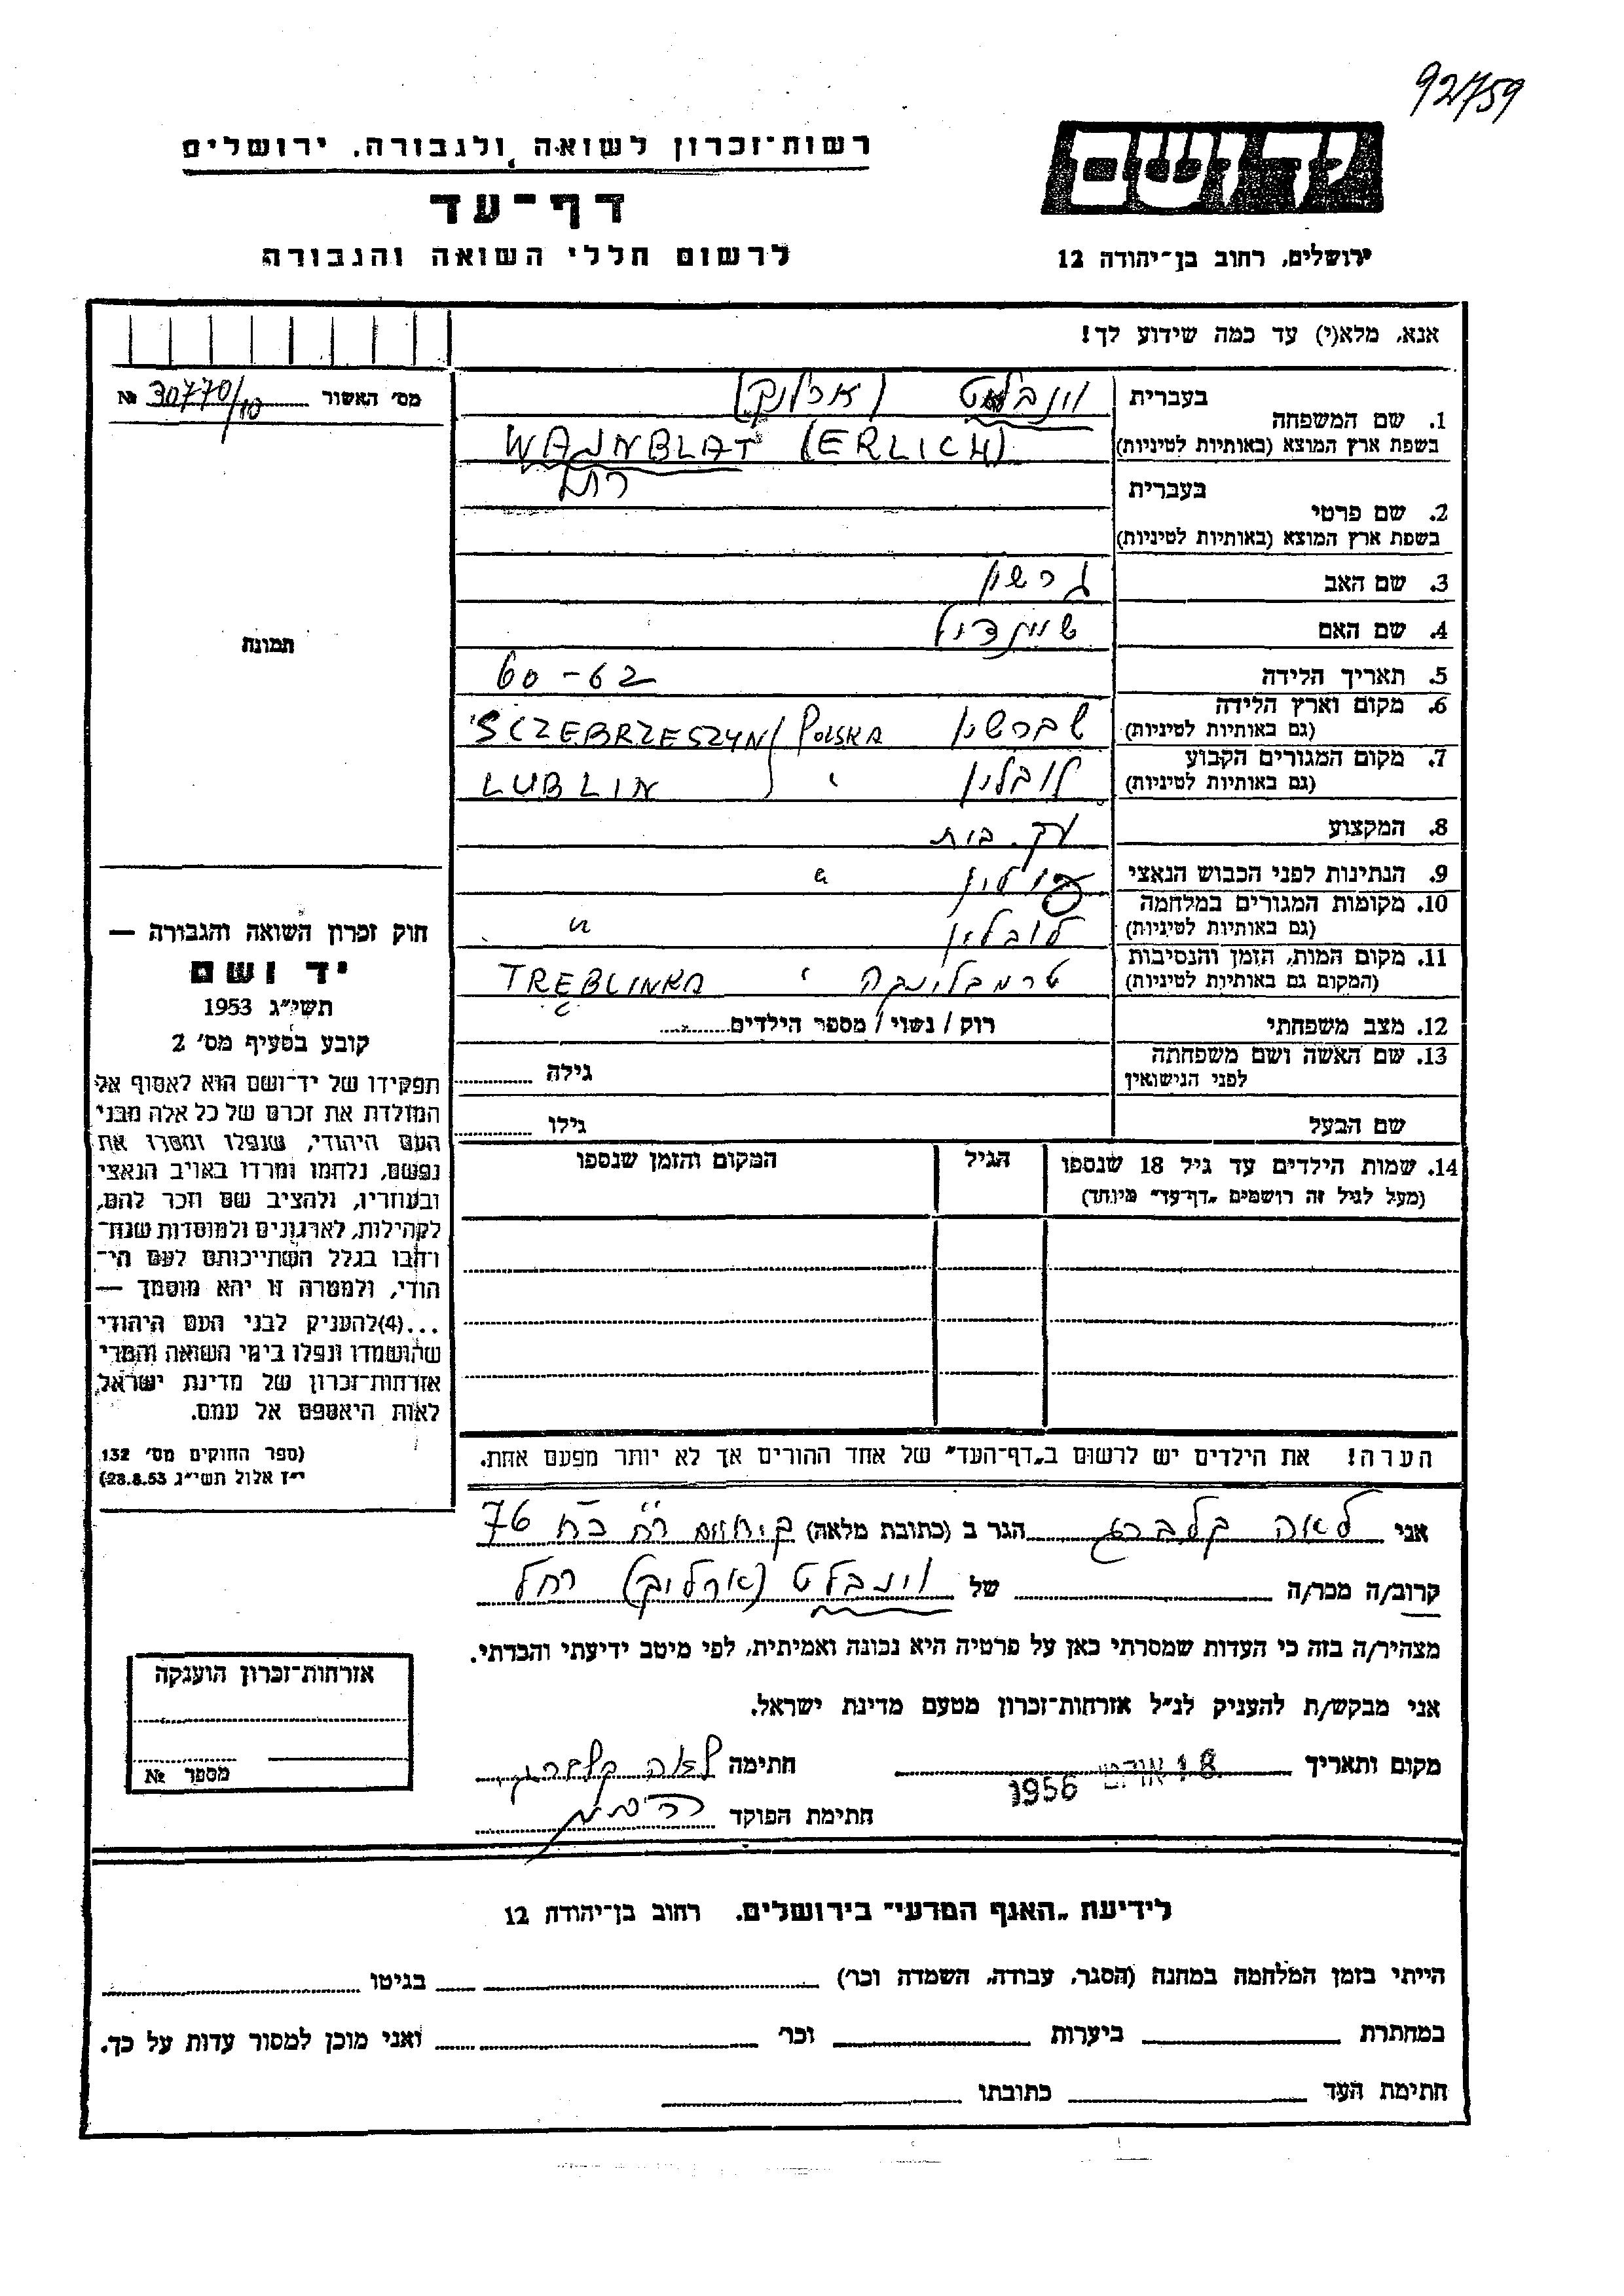 92759
יד ושם
ירושלים, רחוב בן־יהודה 12
רשות־זכרון לשואה ולגבורה, ירושלים
דף־עד
לרשום חללי השואה והגבורה
אנא, מלא(י) עד כמה שידוע לך!
מס׳ האשור 30770/10 №
תמונה
חוק זכרון השואה והגבורה —
יד ושם
תשי״ג 1953
קובע בסעיף מס׳ 2
תפקידו של יד־ושם הוא לאסוף אל
המולדת את זכרם של כל אלה מבני
העם היהודי, שנפלו ומסרו את
נפשם, נלחמו ומרדו באויב הנאצי
ובעוזריו, ולהציב שם וזכר להם,
לקהילות, לארגונים ולמוסדות שנח־
רבו בגלל השתייכותם לעם הי־
הודי, ולמטרה זו יהא מוסמך —
...(4)להעניק לבני העם היהודי
שהושמדו ונפלו בימי השואה והמרי
אזרחות־זכרון של מדינת ישראל,
לאות היאספם אל עמם.
(ספר החוקים מס׳ 132,
י״ז אלול תשי״ג 28.8.53)
1. שם המשפחה
בעברית וינבלט (ארליך)
בשפת ארץ המוצא (באותיות לטיניות) WAJNBLAT (ERLICH)
2. שם פרטי
בעברית רחל
בשפת ארץ המוצא (באותיות לטיניות)
3. שם האב גרשון
4. שם האם שיינדיל
5. תאריך הלידה 60-62
6. מקום וארץ הלידה (גם באותיות לטיניות) שברשין SCZEBRZESZYN/ POLSKA
7. מקום המגורים הקבוע (גם באותיות לטיניות) לובלין " LUBLIN
8. המקצוע עק. בית
9. הנתינות לפני הכבוש הנאצי פולין "
10. מקומות המגורים במלחמה (גם באותיות לטיניות) לובלין "
11. מקום המות, הזמן והנסיבות (המקום גם באותיות לטיניות) טרמבלינקה " TREBLINKA
12. מצב משפחתי רוק / נשוי / מספר הילדים
13. שם האשה ושם משפחתה לפני הנישואין גילה
שם הבעל גילו
14. שמות הילדים עד גיל 18 שנספו (מעל לגיל זה רושמים „דף־עד״ מיוחד) הגיל המקום והזמן שנספו
הערה! את הילדים יש לרשום ב„דף־העד״ של אחד ההורים אך לא יותר מפעם אחת.
אני לאה קלברג הגר ב (כתובת מלאה) 76
קרוב/ה מכר/ה של וינבלט (ארליך) רחל
מצהיר/ה בזה כי העדות שמסרתי כאן על פרטיה היא נכונה ואמיתית, לפי מיטב ידיעתי והכרתי.
אני מבקש/ת להעניק לנ״ל אזרחות־זכרון מטעם מדינת ישראל.
מקום ותאריך 18 1956 חתימה לאה קלברג
חתימת הפוקד
אזרחות־זכרון הוענקה
מספר №
לידיעת „האגף המדעי״ בירושלים. רחוב בן־יהודה 12
הייתי בזמן המלחמה במחנה (הסגר, עבודה, השמדה וכר׳) בגיטו
במחתרת ביערות וכר׳ ואני מוכן למסור עדות על כך.
חתימת העד כתובתו